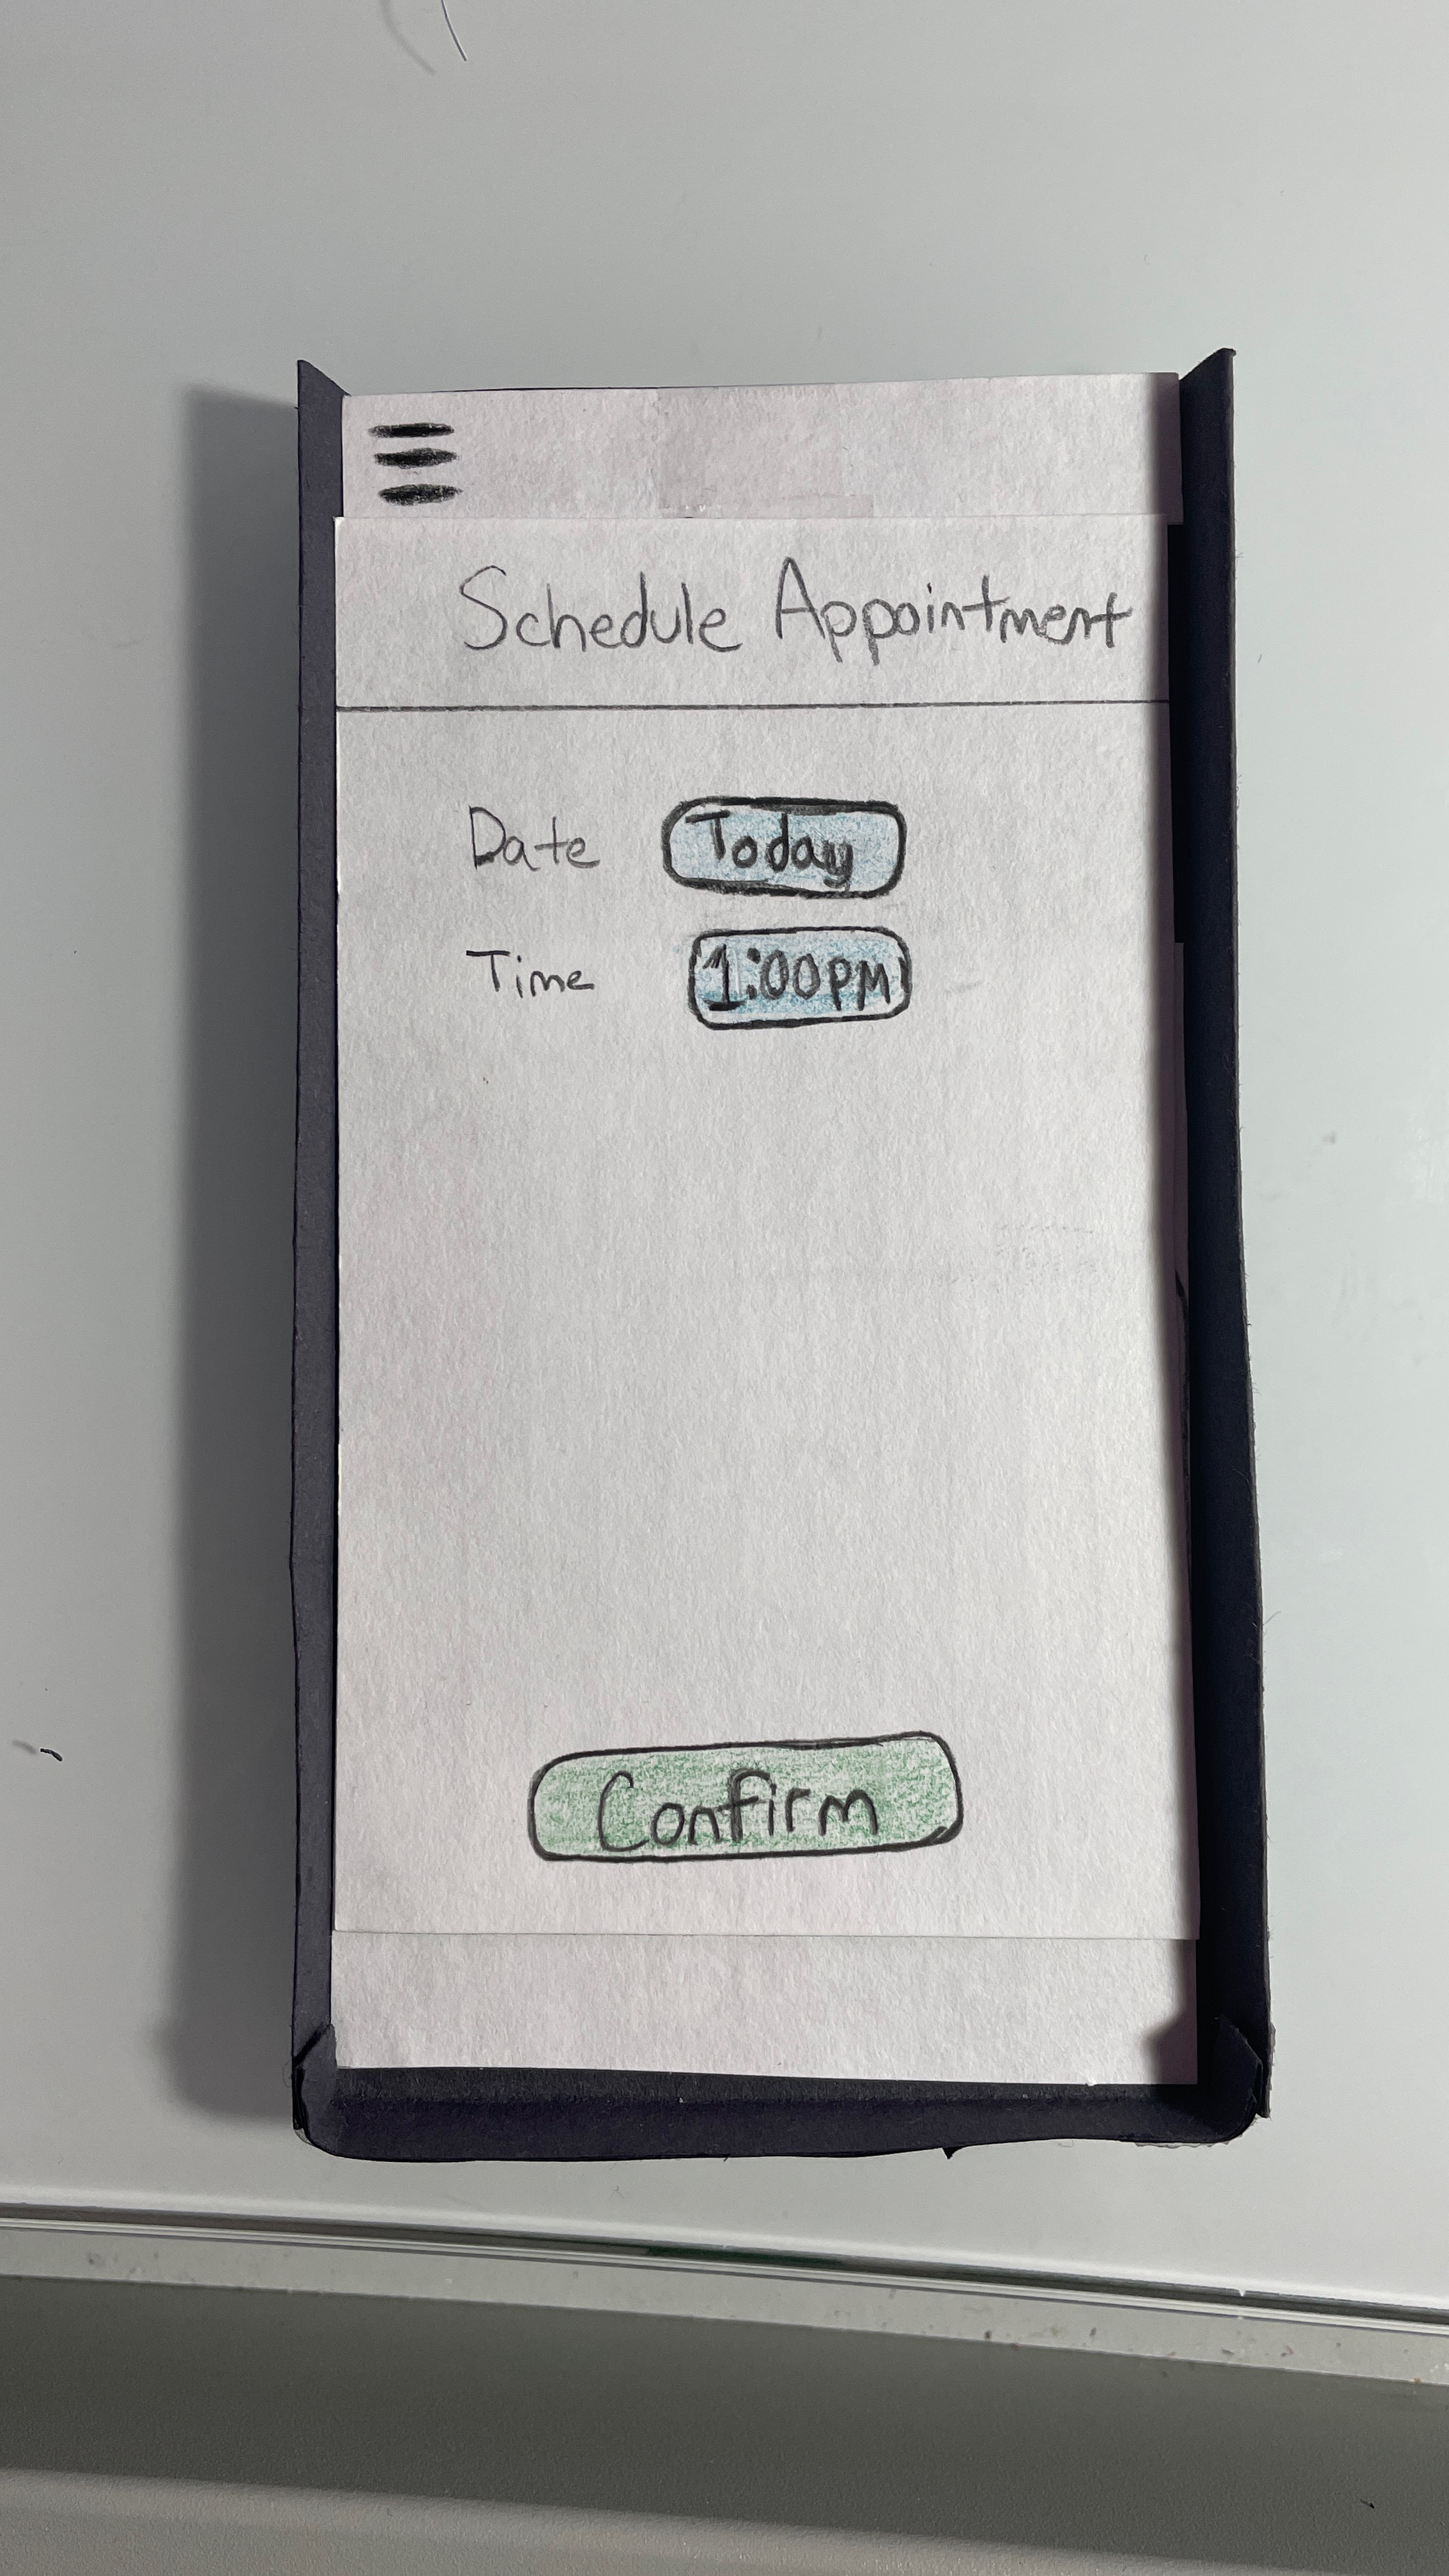 Schedule Appointment
Date Today
Time 1:00PM
Confirm